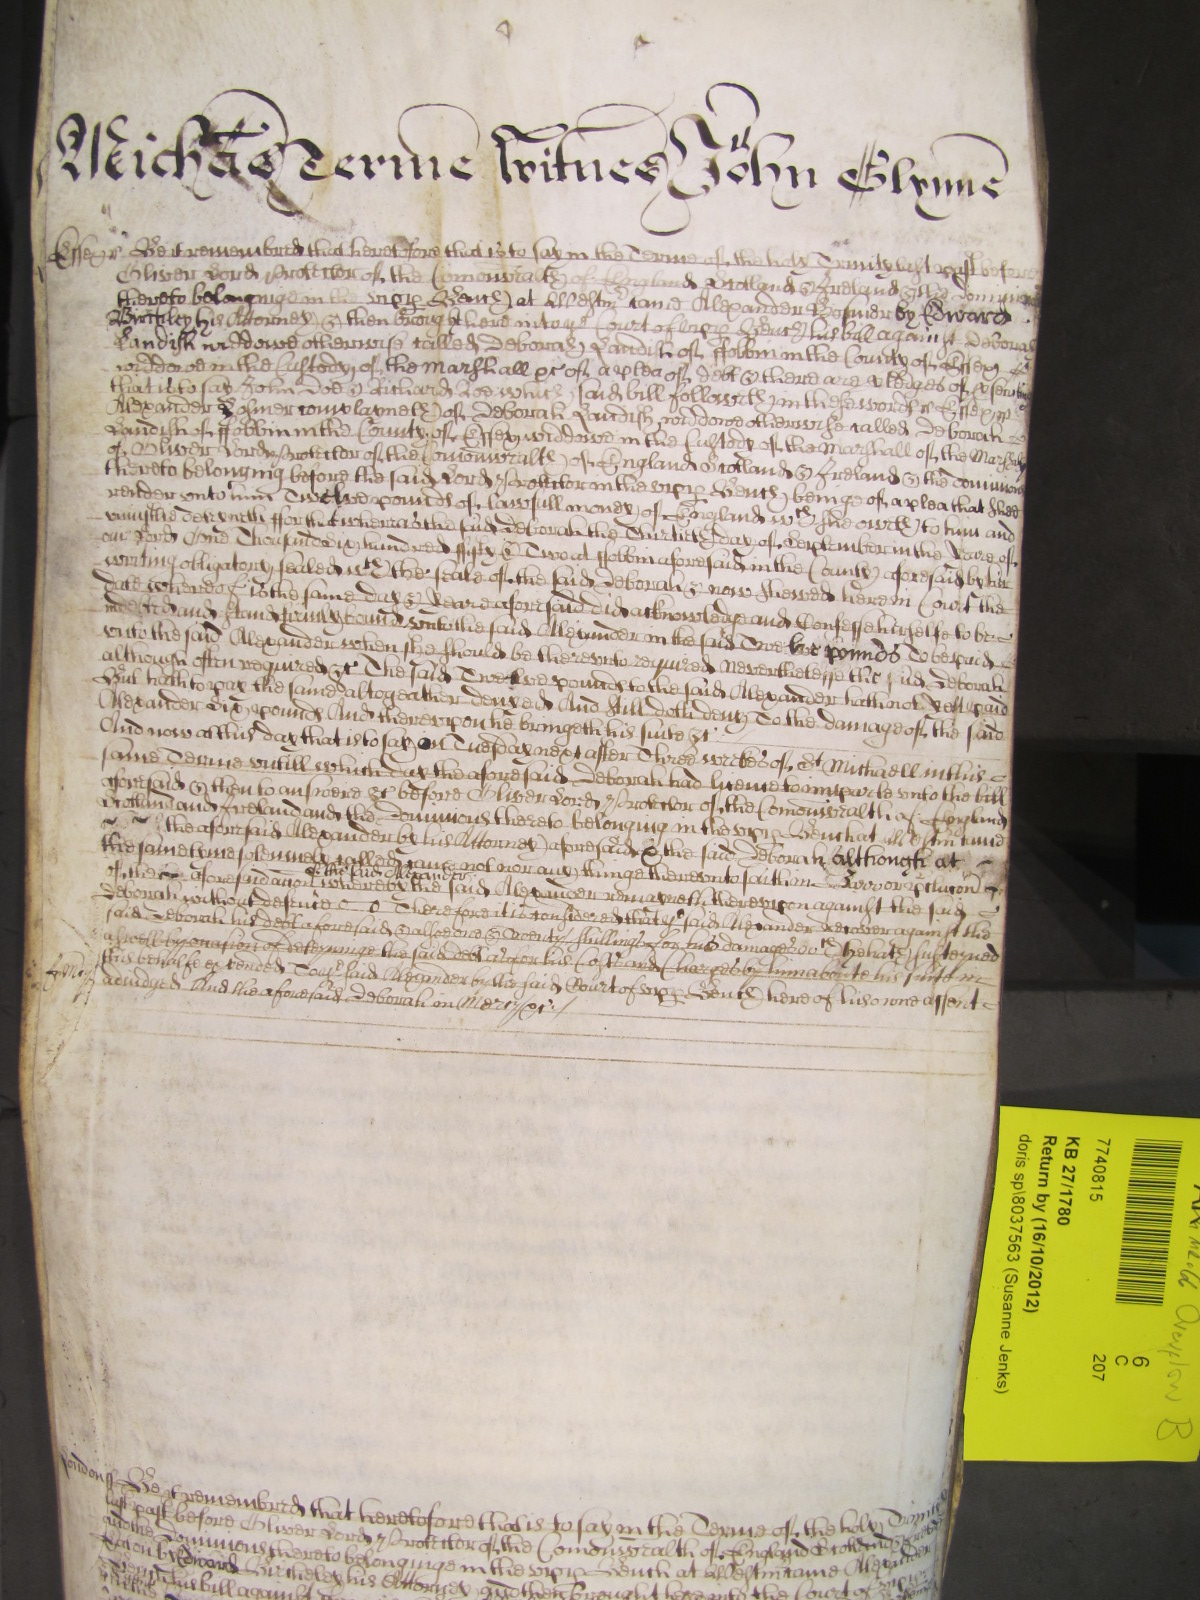 Mich'as Terme Witnes John Glynne
Essex ss Be it remembred that heretofore that is to say in the Terme of the holy Trinity last past before
Oliver Lord Protector of the Comonwealth of England Scotland & Ireland & the Dominions
thereto belonginge in the upper Bench at Westmr came Alexander by Edward
Birchley his Attorney & then brought here into ye Court of upper Bench his bill against Deborah
Landish widdowe otherwise called Deborah Landish of ffobbin in the County of Essex
widdowe in the Custody of the Marshall &c of a plea of Debt & there are pledges of prosecuting
that is to say John Doe & Richard Roe which said bill followeth in these words ss Essex ss
Alexander complayneth of Deborah Landish widdowe otherwise called Deborah
Landish of ffobbin in the County of Essex widdowe in the Custody of the Marshall of the Marshalsey
of Oliver Lord Protector of the Comonwealth of England Scotland & Ireland & the Dominions
thereto belonging before the said Lord Protector in the upper Bench being of a plea that shee
render unto him Twelve pounds of lawfull money of England wch she oweth to him and
uniustlie deteyneth ffor that whereas the said Deborah the Thirtieth day of September in the Yeare of
our Lord One Thousand six hundred fifty & Two at ffobbin aforesaid in the County aforesaid by her
writing obligatory sealed wth the seale of the said Deborah & now shewed here in Court the
date whereof is the same day & Yeare aforesaid did acknowledge and Confesse herselfe to bee
and stand firmly bound unto the said Alexander in the said Twelve pounds To be paid
unto the said Alexander when she should be thereunto required Neverthelesse the said Deborah
although often required &c The said Twelve pounds to the said Alexander hath not yett paid
But hath to pay the same altogeather denyed And still doth deny To the damage of the said
Alexander Six pounds And thereupon he bringeth his suite &c
And now at this day that is to say on Tuesday next after Three weekes of St Michaell in this
same Terme untill which day the aforesaid Deborah had licence to imparle unto the bill
aforesaid & then to answere &c before Oliver Lord Protector of the Comonwealth of England
Scotland and Ireland and the Dominions thereto belonging in the upper Bench at Westmr came
the aforesaid Alexander by his Attorney aforesaid & the said Deborah although at
the same time solemnely called came not nor any thinge thereunto saith in
& the said Alexander
of the aforesaid action whereby the said Alexander remayneth thereupon against the said
Deborah without defence Therefore it is considered that ye said Alexander recover against the
said Deborah his debt aforesaid & alsoe & Twenty shillings for his damages wch he hath susteyned
aswell by occasion of deteyninge the said debt as for his Costs and Charges by him about his suite in
this behalfe expended To ye said Alexander by the said Court of upper Bench here of his owne assent
adiudged And the aforesaid Deborah in Mercy &c
London ss Be it remembred that heretofore that is to say in the Terme of the holy Trinitie
last past before Oliver Lord Protector of the Comonwealth of England Scotland
and the Dominions thereto belonginge in the upper Bench at Westm came Alexander
by Edward Birchley his Attorney and then brought here into the Court of upper
Bench his bill against
7740815
KB 27/1780
Return by (16/10/2012)
doris sp\8037563 (Susanne Jenks)
6
C
207
Overflow B